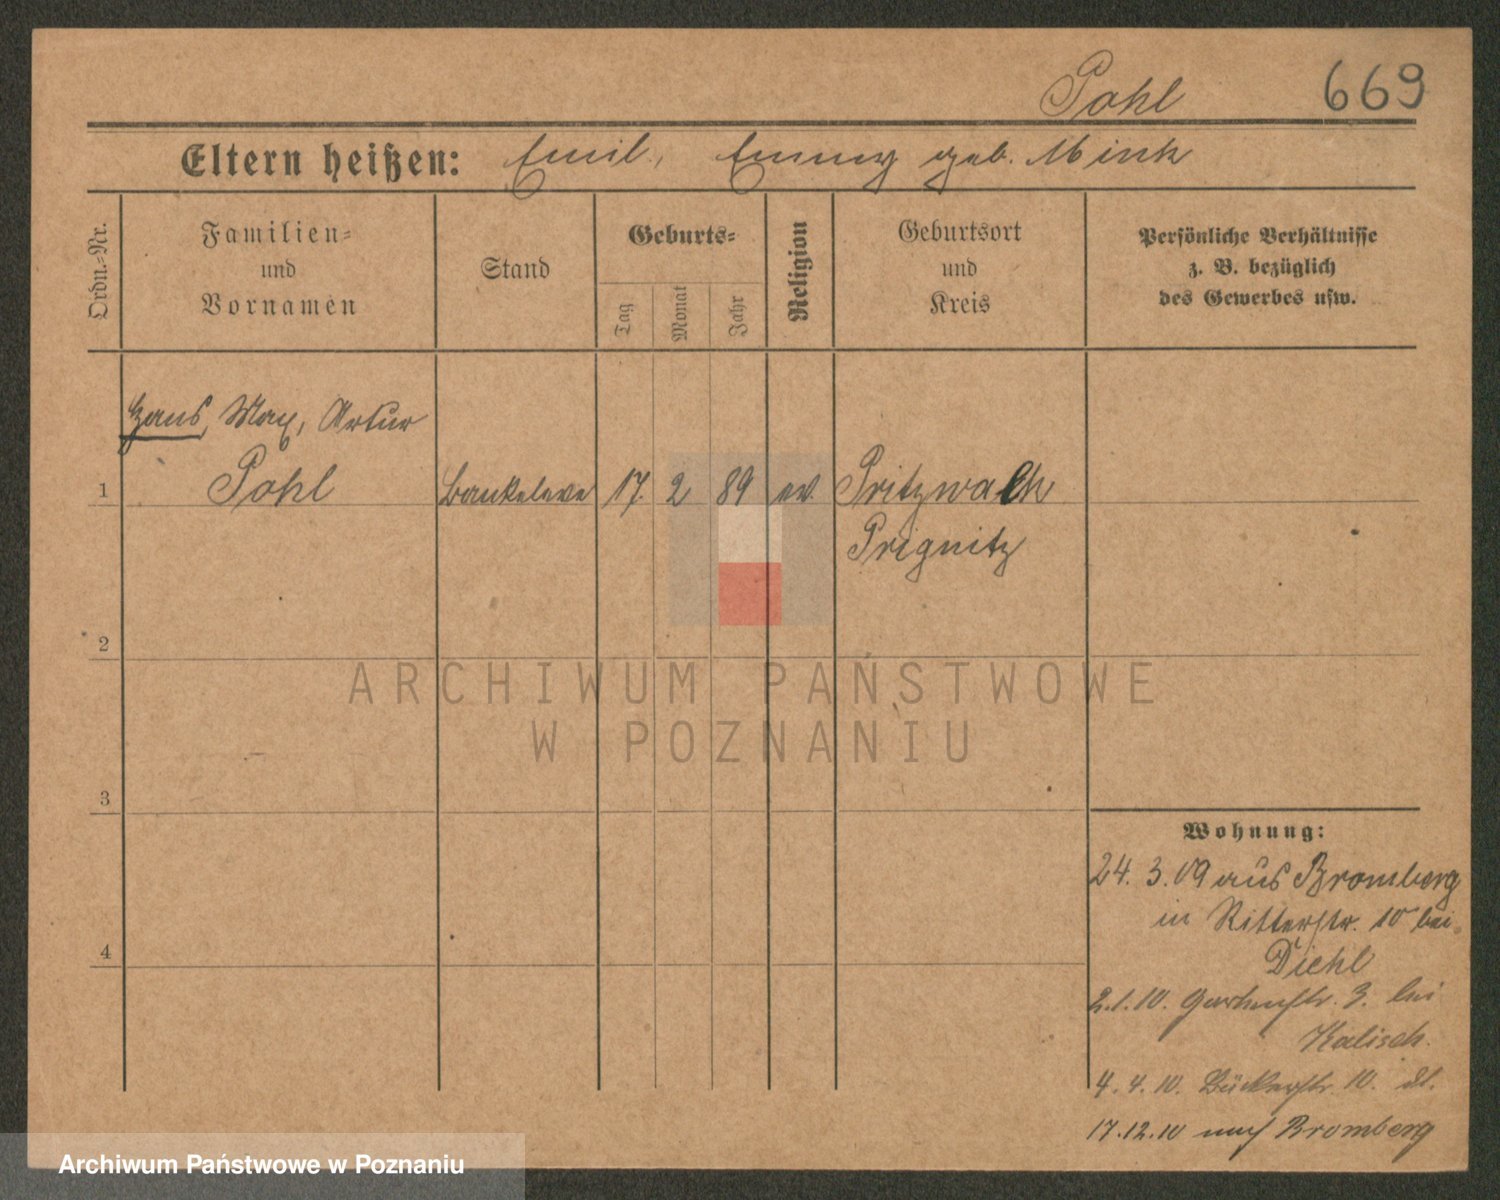 Pohl 669
Eltern heißen: Emil, Emmy geb. Mink
Ordn.-Nr.
Familien-
und
Vornamen
Stand
Geburts-
Tag
Monat
Jahr
Religion
Geburtsort
und
Kreis
Persönliche Verhältnisse
z. B. bezüglich
des Gewerbes usw.
Hans, Max, Artur
1 Pohl Bankeleve 17. 2 89 ev. Pritzwalk
Prignitz
2
3
4
Wohnung:
24. 3. 09 aus Bromberg
in Ritterstr. 10 bei
Diehl
2.1.10. Gartenstr. 3. bei
Kalisch.
4. 4. 10. Bäckerstr. 10.
17.12.10 nach Bromberg
ARCHIWUM PAŃSTWOWE
W POZNANIU
Archiwum Państwowe w Poznaniu